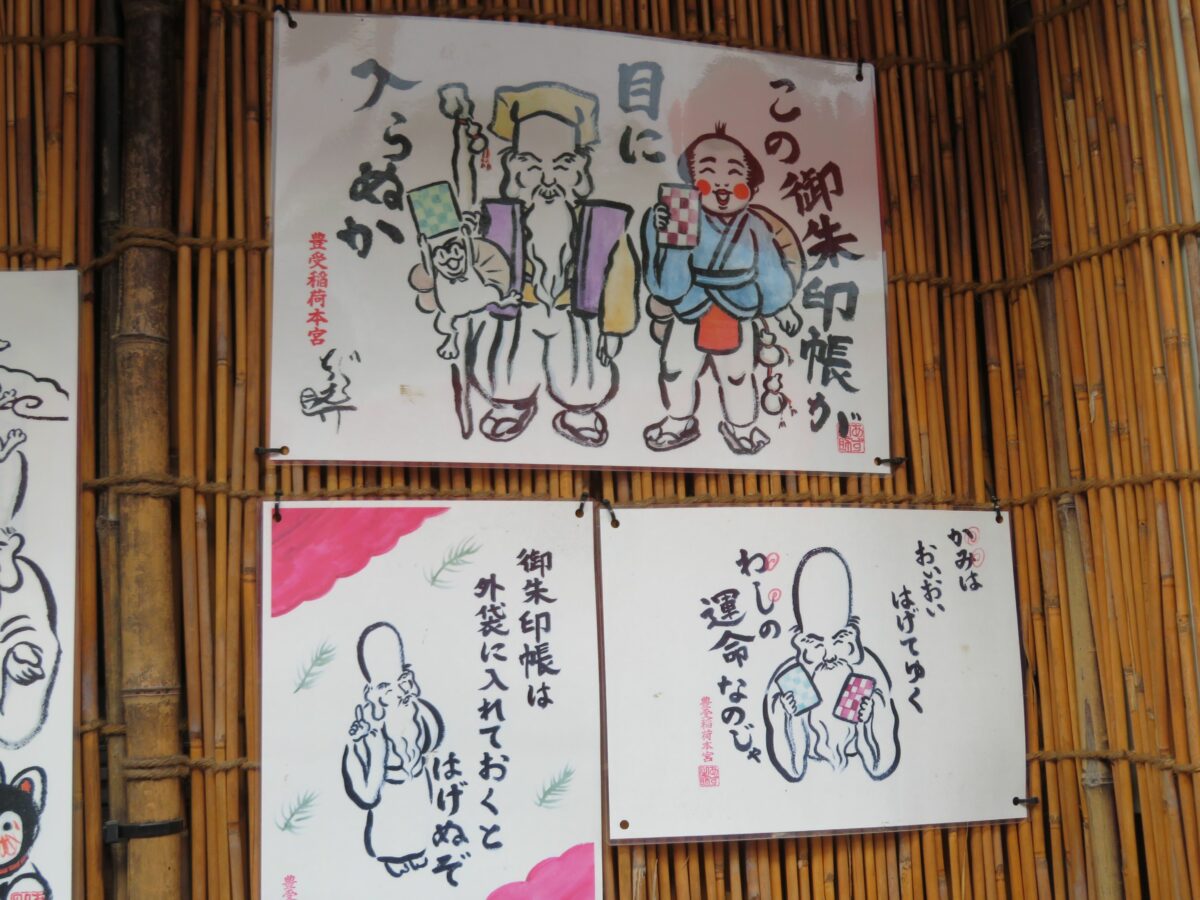 この御朱印帳が
目に
入らぬか
豊受稲荷本宮
御朱印帳は
外袋に入れておくと
はげぬぞ
豊受
かみは
おいおい
はげてゆく
わしの
運命なのじゃ
豊受稲荷本宮